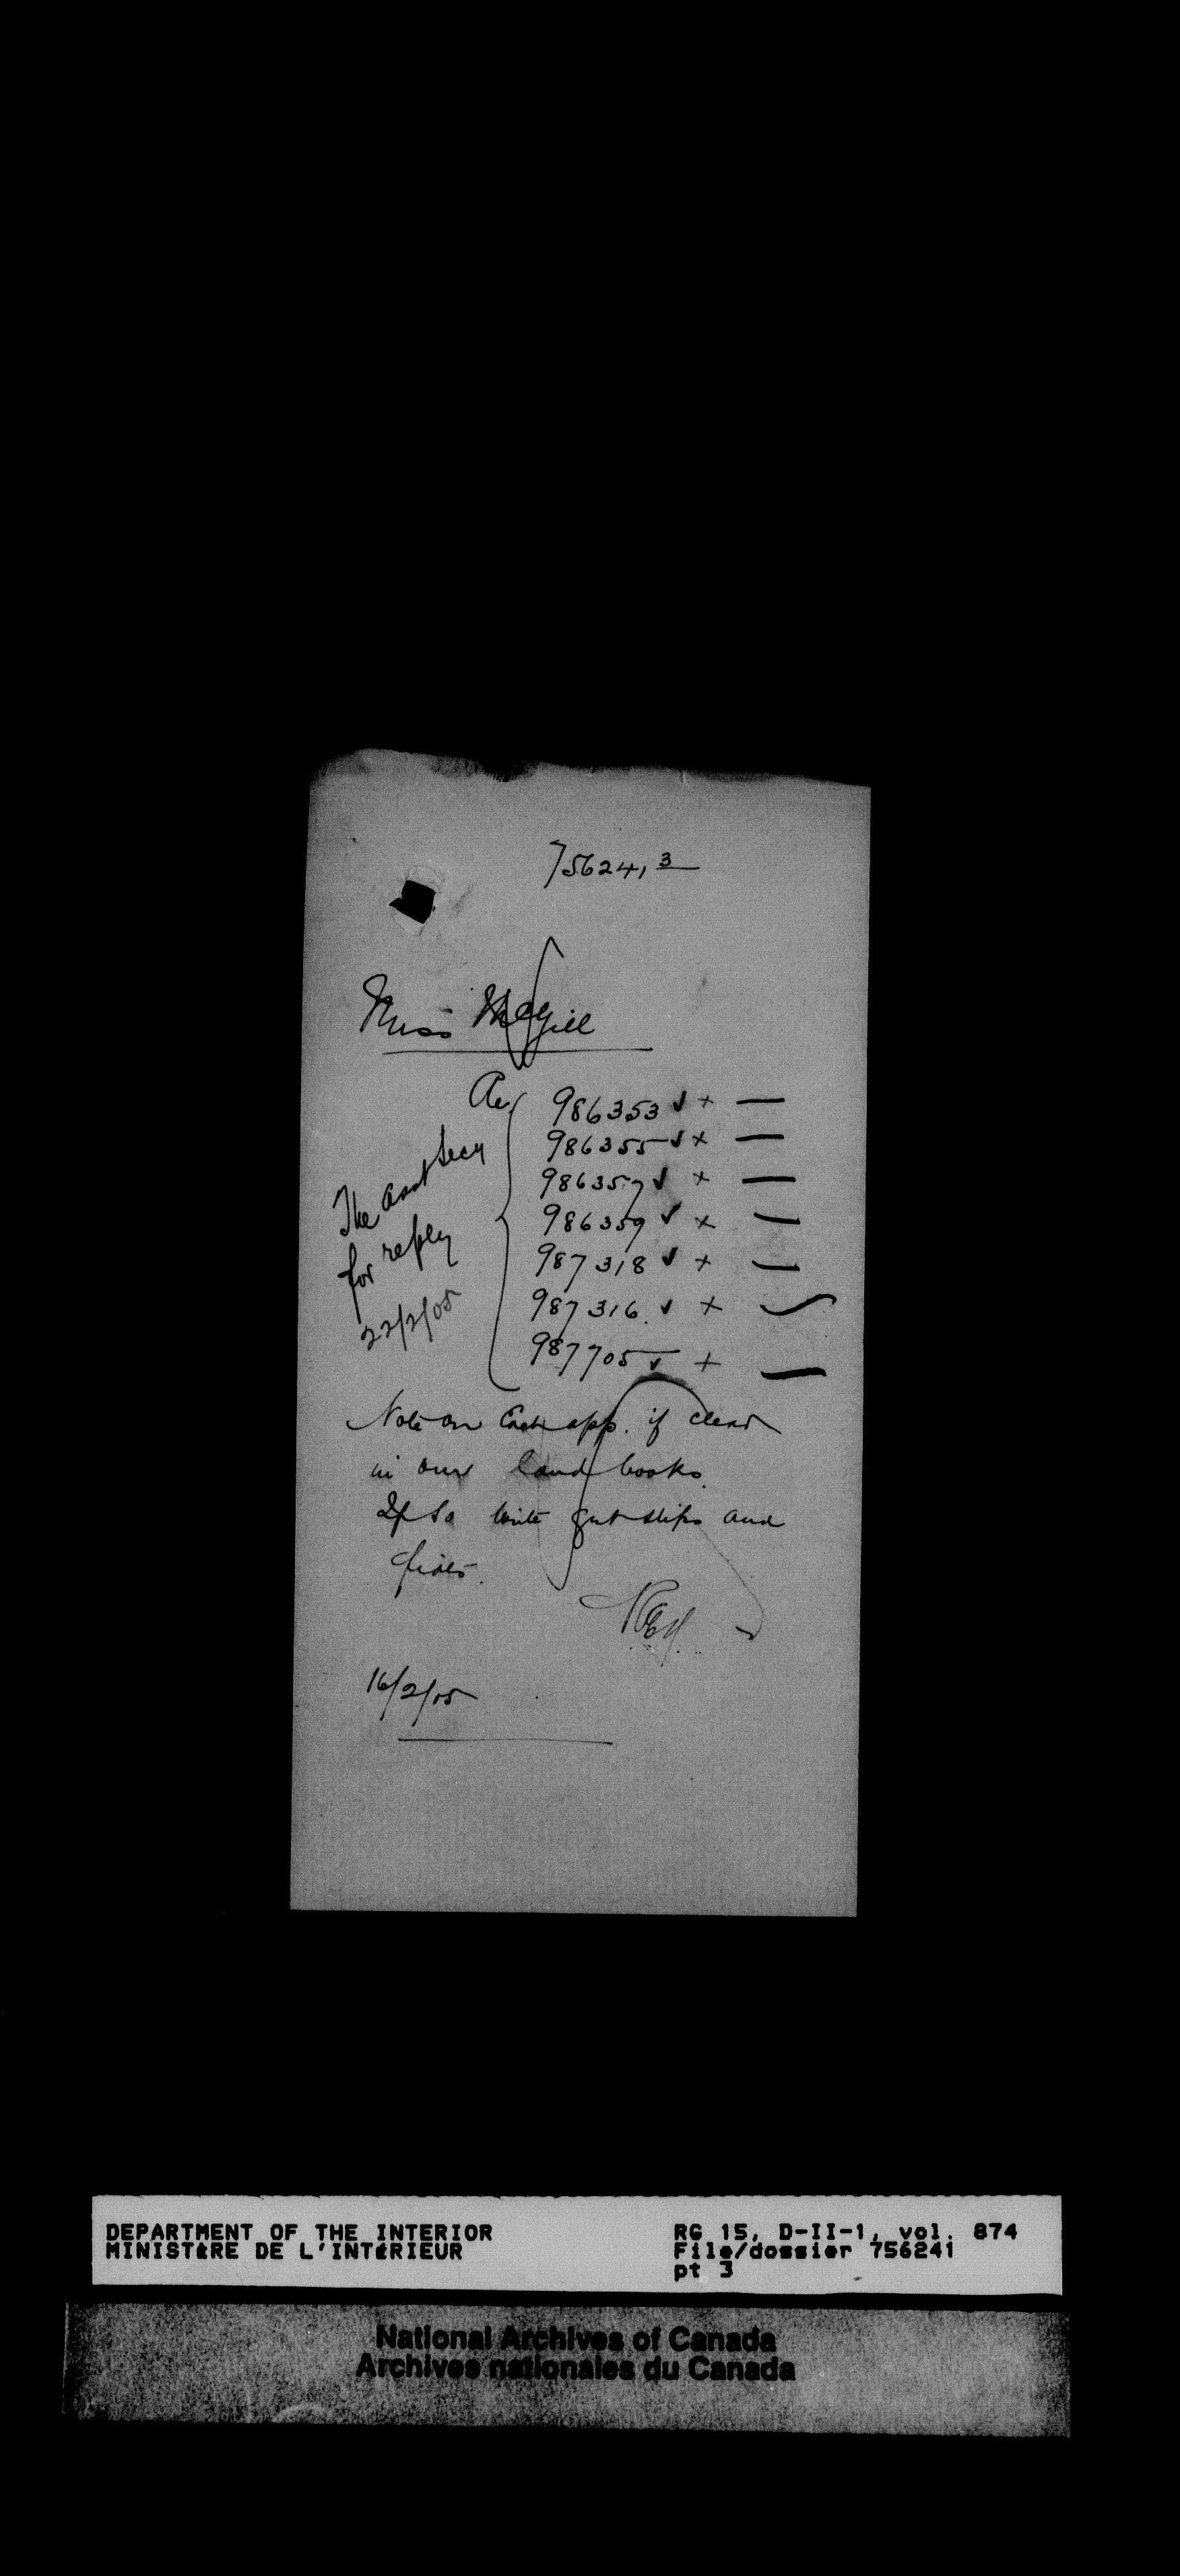 756241 3
Miss Magill
Re
986353 ✓ x —
986355 ✓ x —
986357 ✓ x —
986359 ✓ x —
987318 ✓ x —
987316 ✓ x
987705 ✓ x —
The asst Secy
for reply
22/2/05
Note on Each app. if clear
in our land books.
If so write out slips and
16/2/05
DEPARTMENT OF THE INTERIOR
MINISTÈRE DE L'INTÉRIEUR
RG 15, D-II-1, vol. 874
File/dossier 756241
pt 3
National Archives of Canada
Archives nationales du Canada